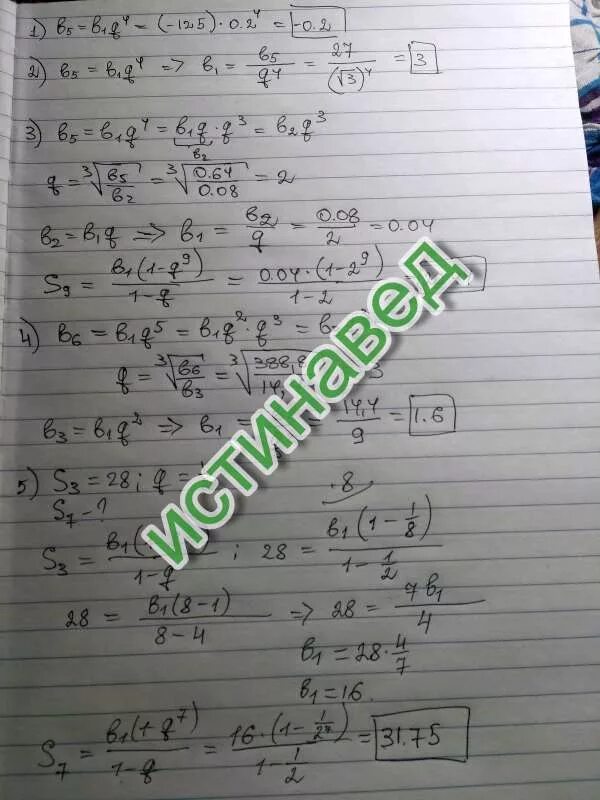 1) b₅ = b₁q⁴ = (-125) · 0.2⁴ = -0.2
2) b₅ = b₁q⁴ => b₁ = b₅/q⁴ = 27/(√3)⁴ = 3
3) b₅ = b₁q⁴ = b₁q · q³ = b₂q³
b₂
q = ∛(b₅/b₂) = ∛(0.64/0.08) = 2
b₂ = b₁q => b₁ = b₂/q = 0.08/2 = 0.04
S₉ = b₁(1-q⁹)/(1-q) = 0.04 · (1-2⁹)/(1-2)
4) b₆ = b₁q⁵ = b₁q² · q³ = b
q = ∛(b₆/b₃) = ∛(388,8/14, 3
b₃ = b₁q² => b₁ = = 14,4/9 = 1.6
5) S₃ = 28; q =
S₇ - ?
· 8
S₃ = b₁( /(1-q) ; 28 = b₁(1 - 1/8)/(1 - 1/2)
28 = b₁(8-1)/(8-4) => 28 = 7b₁/4
b₁ = 28 · 4/7
b₁ = 16
S₇ = b₁(1-q⁷)/(1-q) = 16 · (1 - 1/2⁷)/(1 - 1/2) = 31.75
ИСТИНАВЕД